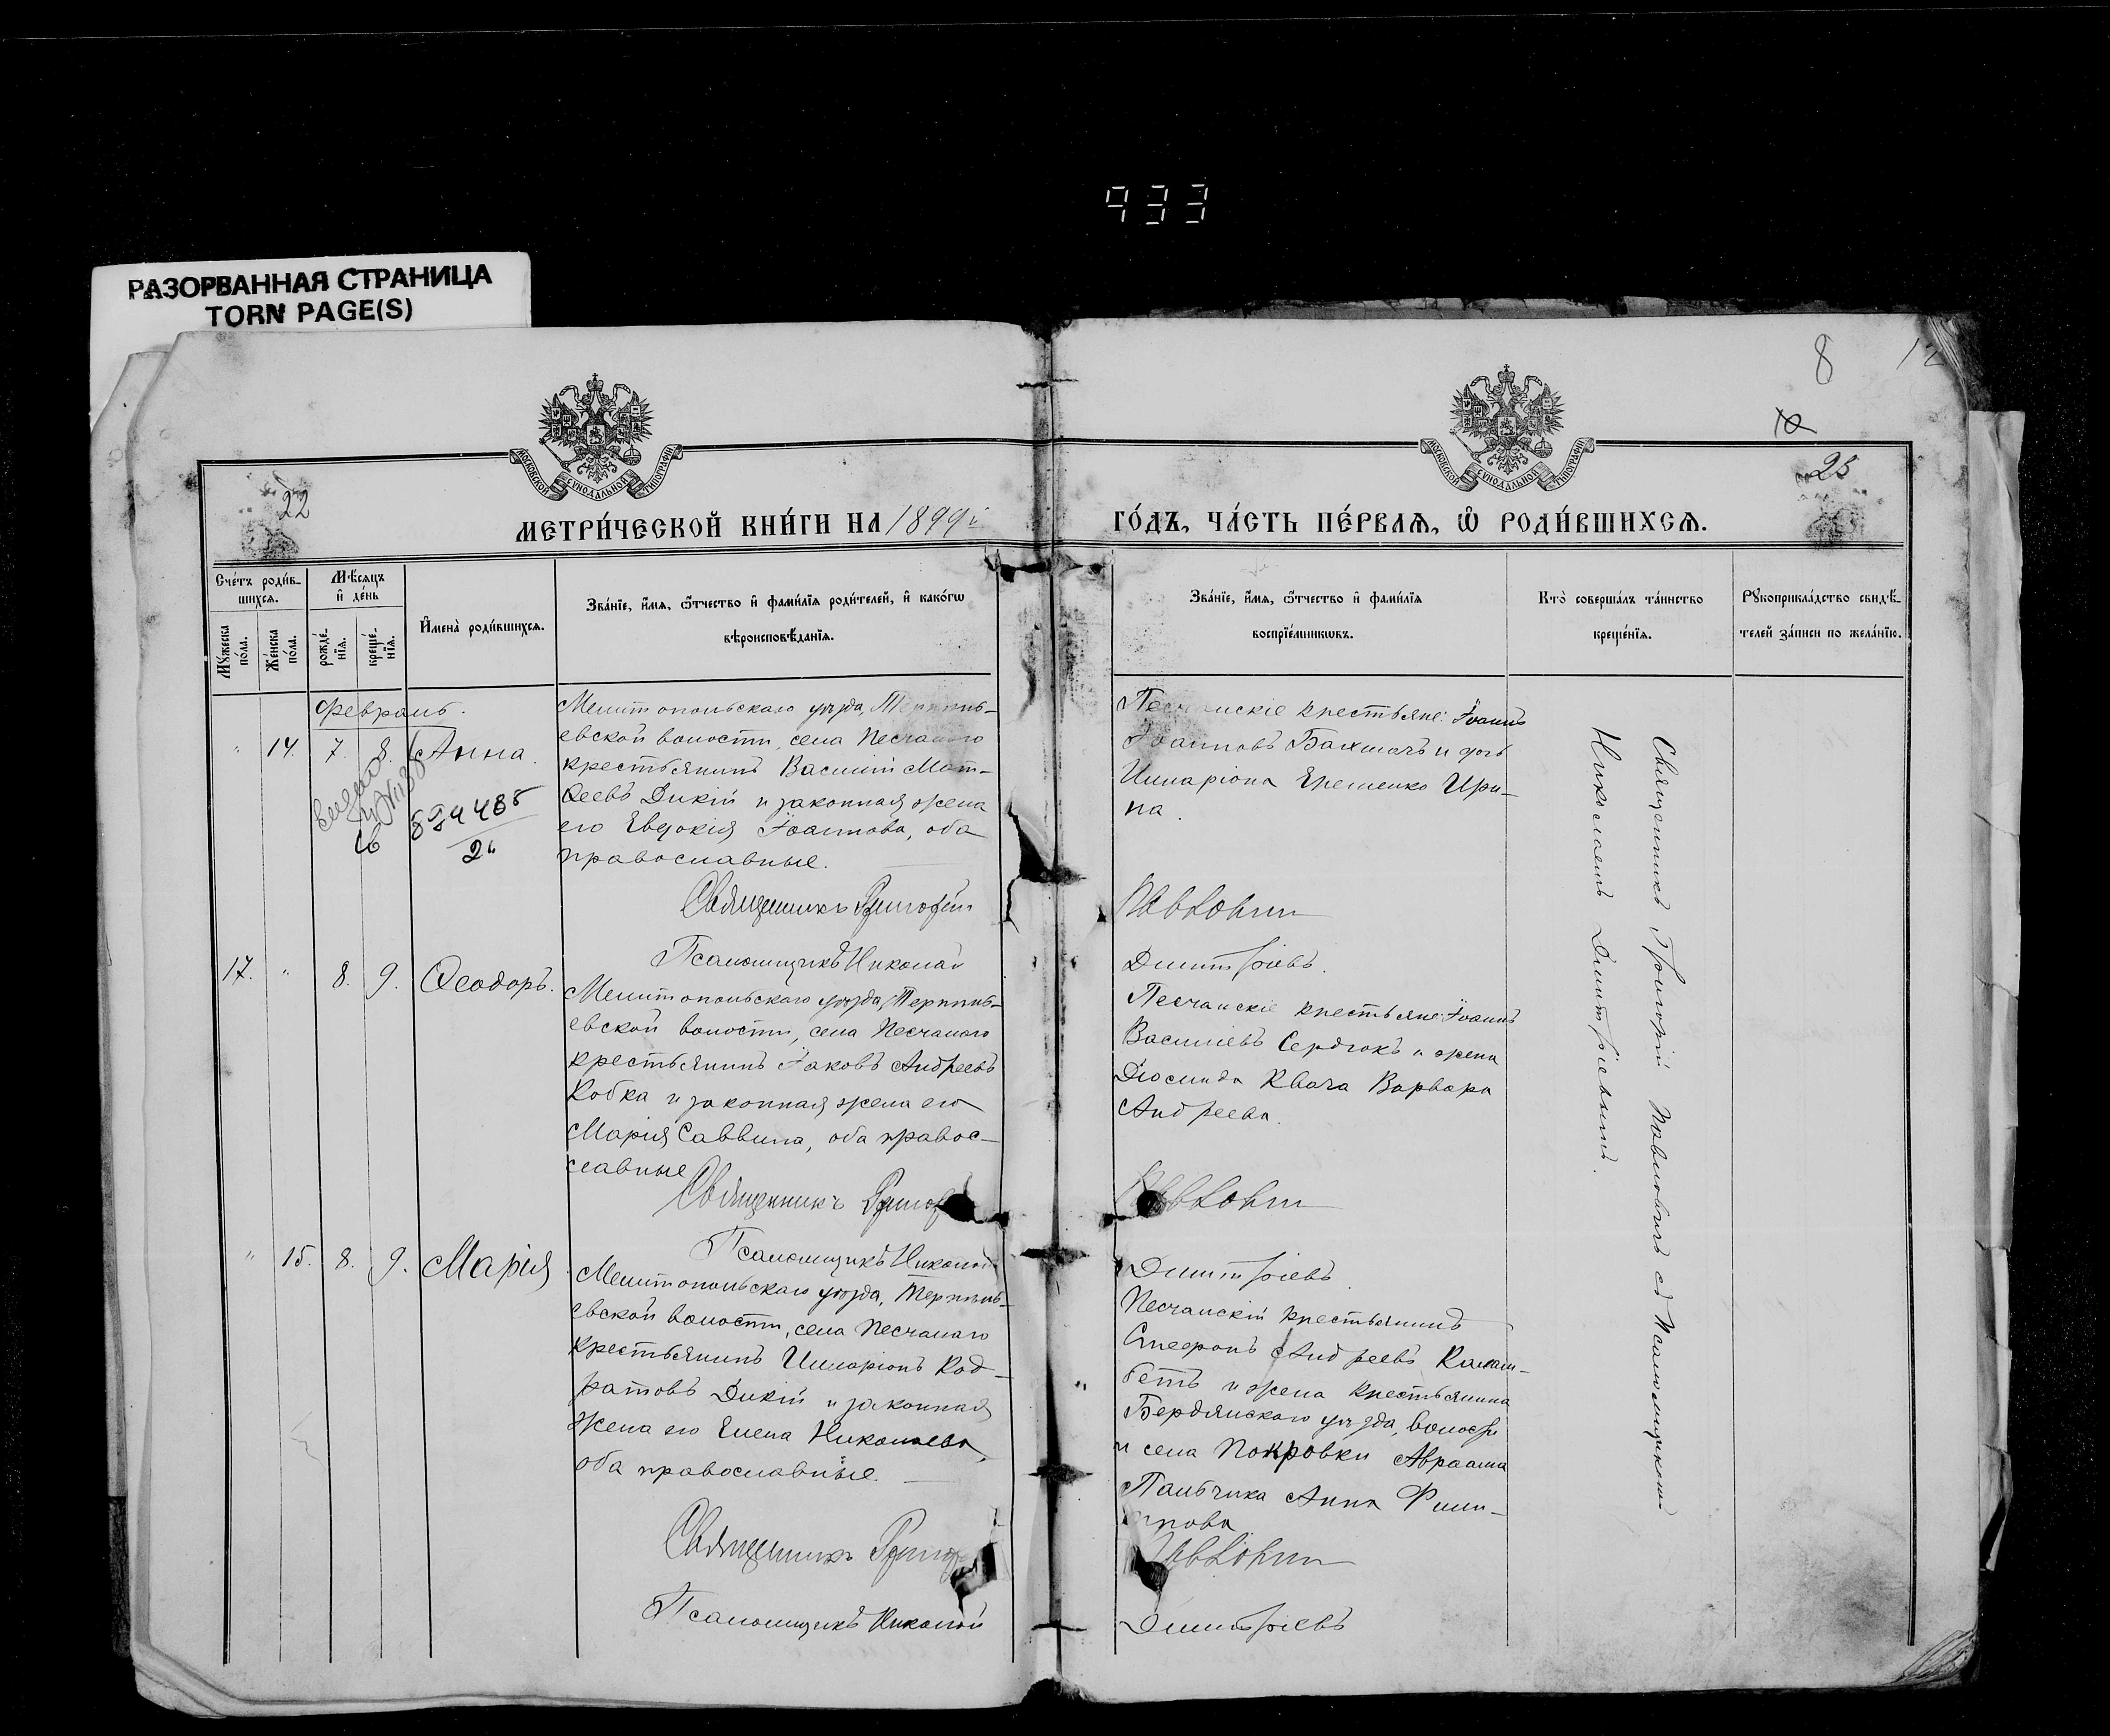 933
РАЗОРВАННАЯ СТРАНИЦА
TORN PAGE(S)
8
12
10
22
25
МОСКОВСКОЙ СУНОДАЛЬНОЙ ТИПОГРАФІИ
МОСКОВСКОЙ СУНОДАЛЬНОЙ ТИПОГРАФІИ
МЕТРИ́ЧЕСКОЙ КНИ́ГИ НА 1899й
ГО́ДЪ, ЧА́СТЬ ПЕ́РВАѦ, Ѡ҆ РОДИ́ВШИХСѦ.
Сче́тъ роди́в-
шихсѧ.
Мѣ́сѧцъ
и҆ де́нь
Мꙋ́жеска
по́ла.
Же́нска
по́ла.
рожде́-
нїѧ.
креще́-
нїѧ.
И҆мена̀ роди́вшихсѧ.
Зва́нїе, и҆́мѧ, ѻ҆́тчество и҆ фами́лїѧ роди́телей, и҆ како́гѡ
вѣроисповѣ́данїѧ.
Зва́нїе, и҆́мѧ, ѻ҆́тчество и҆ фами́лїѧ
воспрїе́мникѡвъ.
Кто̀ соверша́лъ та́инство
креще́нїѧ.
Рꙋкоприкла́дство свидѣ́-
телей за́писи по жела́нїю.
Февраль.
" 14. 7. 8. Анна.
Мелитопольскаго уѣзда, Терпѣнь-
евской волости, села Песчанаго
крестьянинъ Василій Мат-
ѳеевъ Дикій и законная жена
его Евдокія Іоаннова, оба
православные.
Священникъ Григорій
Псаломщикъ Николай
Песчанскіе крестьяне: Іоаннъ
Іоанновъ Бахмачъ и дочь
Илларіона Ярешенко Ири-
на.
Павловъ
Димитріевъ.
17. " 8. 9. Ѳеодоръ.
Мелитопольскаго уѣзда, Терпѣнь-
евской волости, села Песчанаго
крестьянинъ Іаковъ Андреевъ
Кобка и законная жена его
Марія Саввина, оба правос-
лавные
Священникъ Григорій
Псаломщикъ Николай
Песчанскіе крестьяне: Іоаннъ
Васильевъ Сердюкъ и жена
Діомида Квача Варвара
Андреева.
Димитріевъ
" 15. 8. 9. Марія
Мелитопольскаго уѣзда, Терпѣнь-
евской волости, села Песчанаго
крестьянинъ Илларіонъ Код-
ратовъ Дикій и законная
жена его Елена Николаева,
оба православные.
Священникъ Григорій
Псаломщикъ Николай
Песчанскій крестьянинъ
Стефанъ Андреевъ Калаш-
бетъ и жена крестьянина
Бердянскаго уѣзда, волости
и села Покровки Авраама
Пальчика Анна Фили-
ппова
Димитріевъ
Священникъ Григорій Павловъ съ Псаломщикомъ
Николаемъ Димитріевымъ.